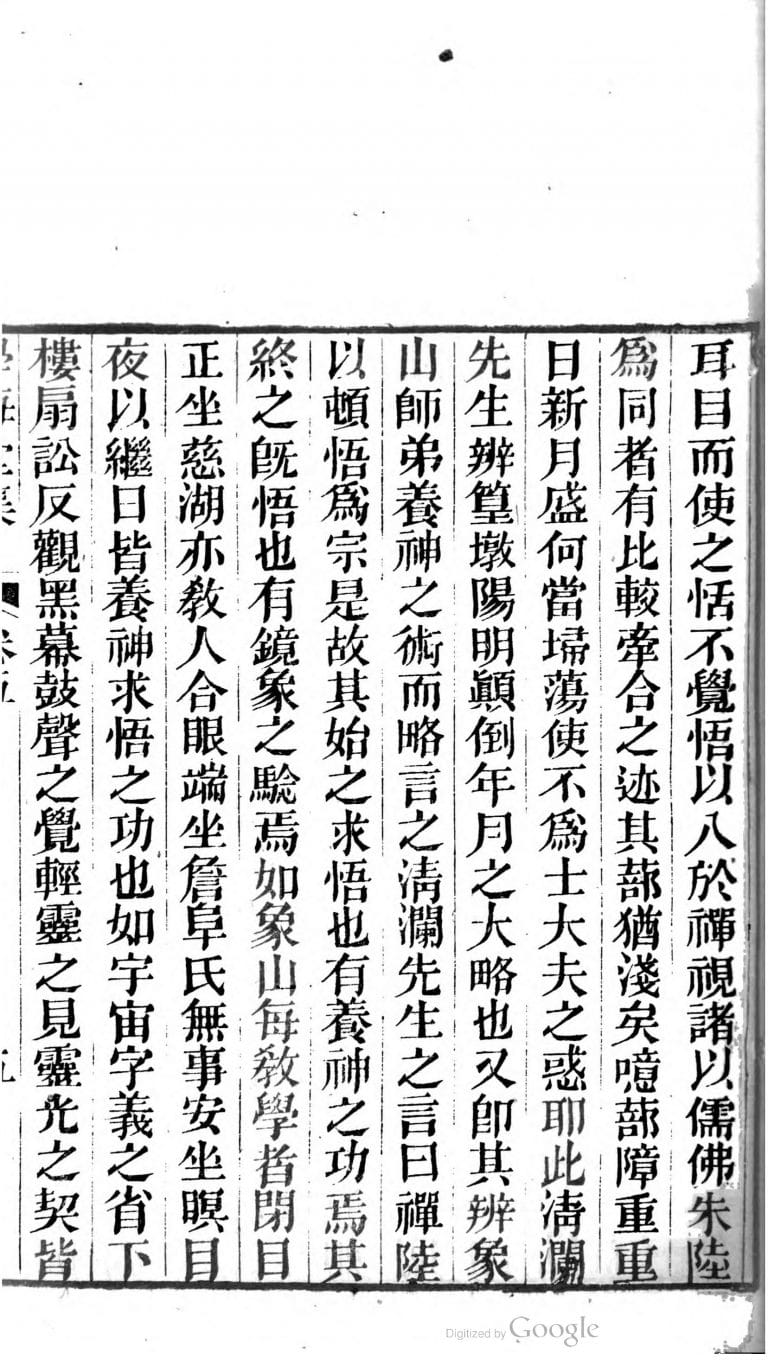 耳目而使之恬不覺悟以入於禪視諸以儒佛朱陸
爲同者有比較牽合之迹其蔀猶淺矣噫蔀障重重
日新月盛何當埽蕩使不爲士大夫之惑耶此淸瀾
先生辨篁墩陽明顚倒年月之大略也又卽其辨象
山師弟養神之術而略言之淸瀾先生之言曰禪陸
以頓悟爲宗是故其始之求悟也有養神之功焉其
終之旣悟也有鏡象之驗焉如象山每敎學者閉目
正坐慈湖亦敎人合眼端坐詹阜氏無事安坐瞑目
夜以繼日皆養神求悟之功也如宇宙字義之省下
樓扇訟反觀黑幕鼓聲之覺輕靈之見靈光之契皆
學海堂集 卷五 五
Digitized by Google